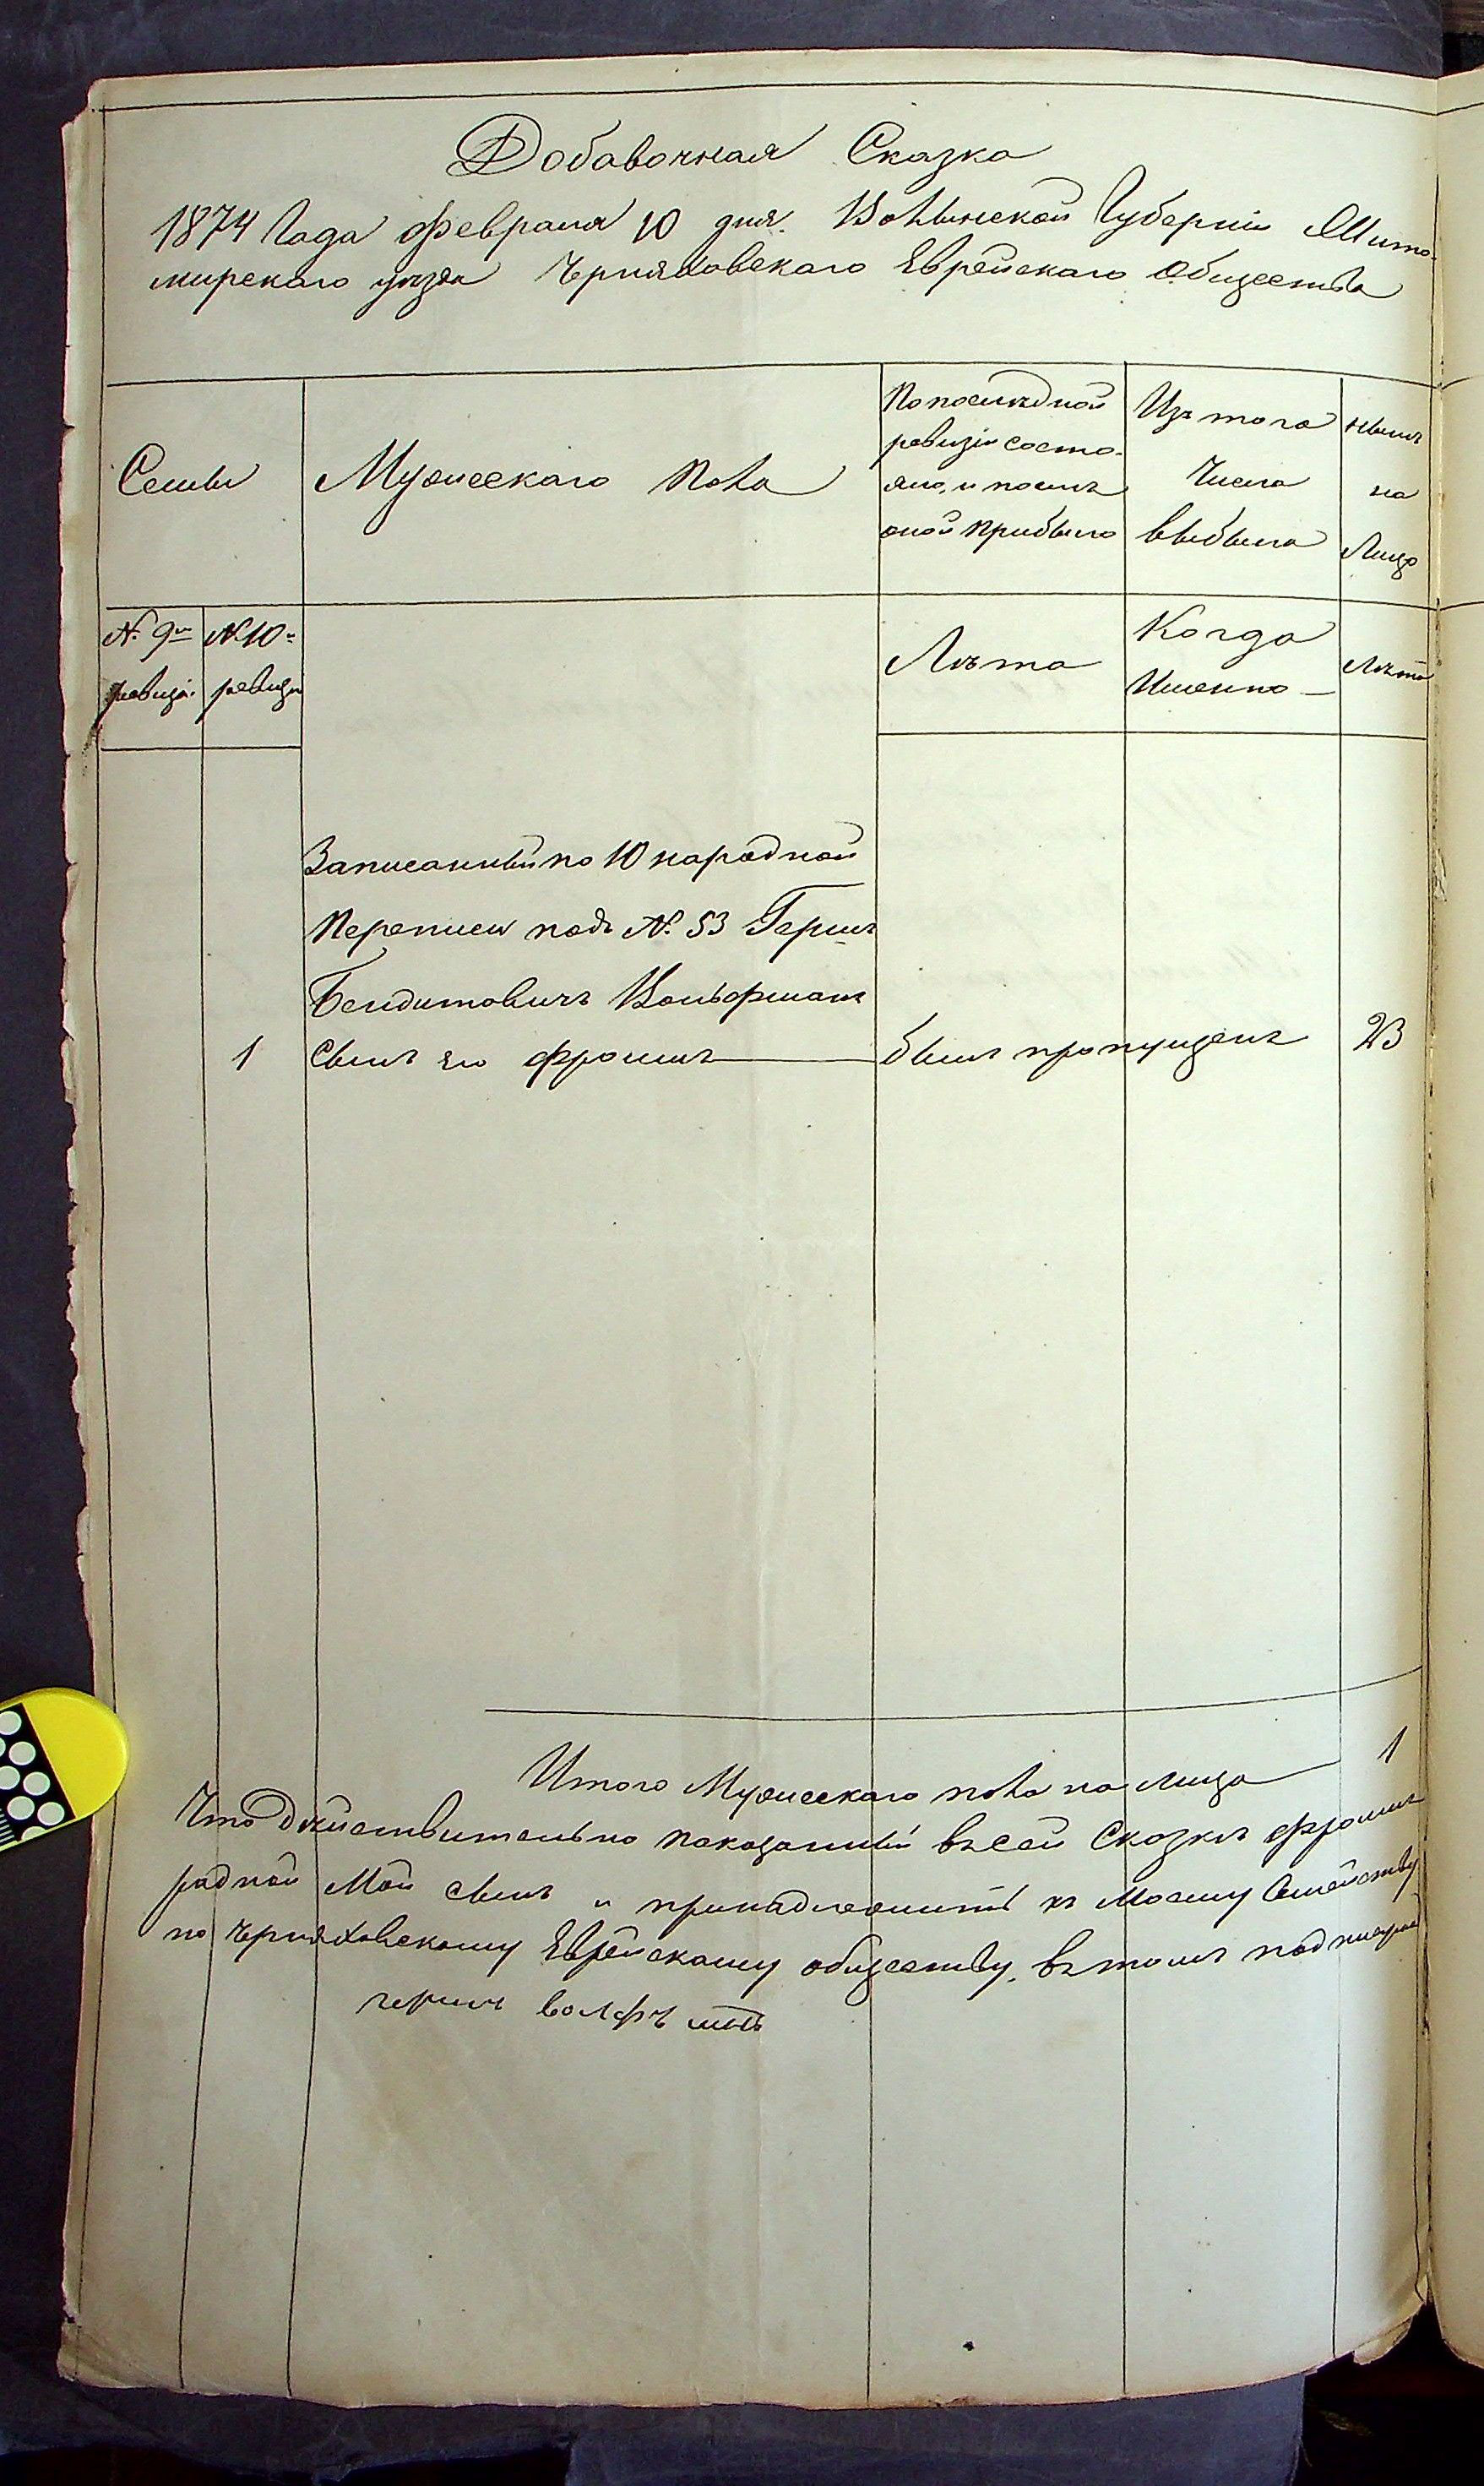 Добавочная Сказка
1874 Года февраля 10 дня. Волынской Губерніи Жито-
мирскаго уѣзда Черняховскаго Еврейскаго Общества
Семьи
Мужескаго Пола
По послѣдной
ревизіи состо-
яло, и послѣ
оной прибыло
Изъ того
Числа
выбыло
нынѣ
на
Лицо
№ 9й
ревизіи
№ 10й
ревизіи
Лѣта
Когда
Именно —
Лѣта
Записанный по 10 народной
Переписи подъ № 53 Гершъ
Бендитовичъ Вольфманъ
1 Сынъ его Фроимъ — былъ пропущенъ 23
Итого Мужескаго пола на лицо 1
Что дѣйствительно показанный въ сей Сказкѣ Фроимъ
радной Мой сынъ и принадлежитъ къ Моему Семейству
по Черняховскому Еврейскому обществу, въ томъ
гершъ волфъ